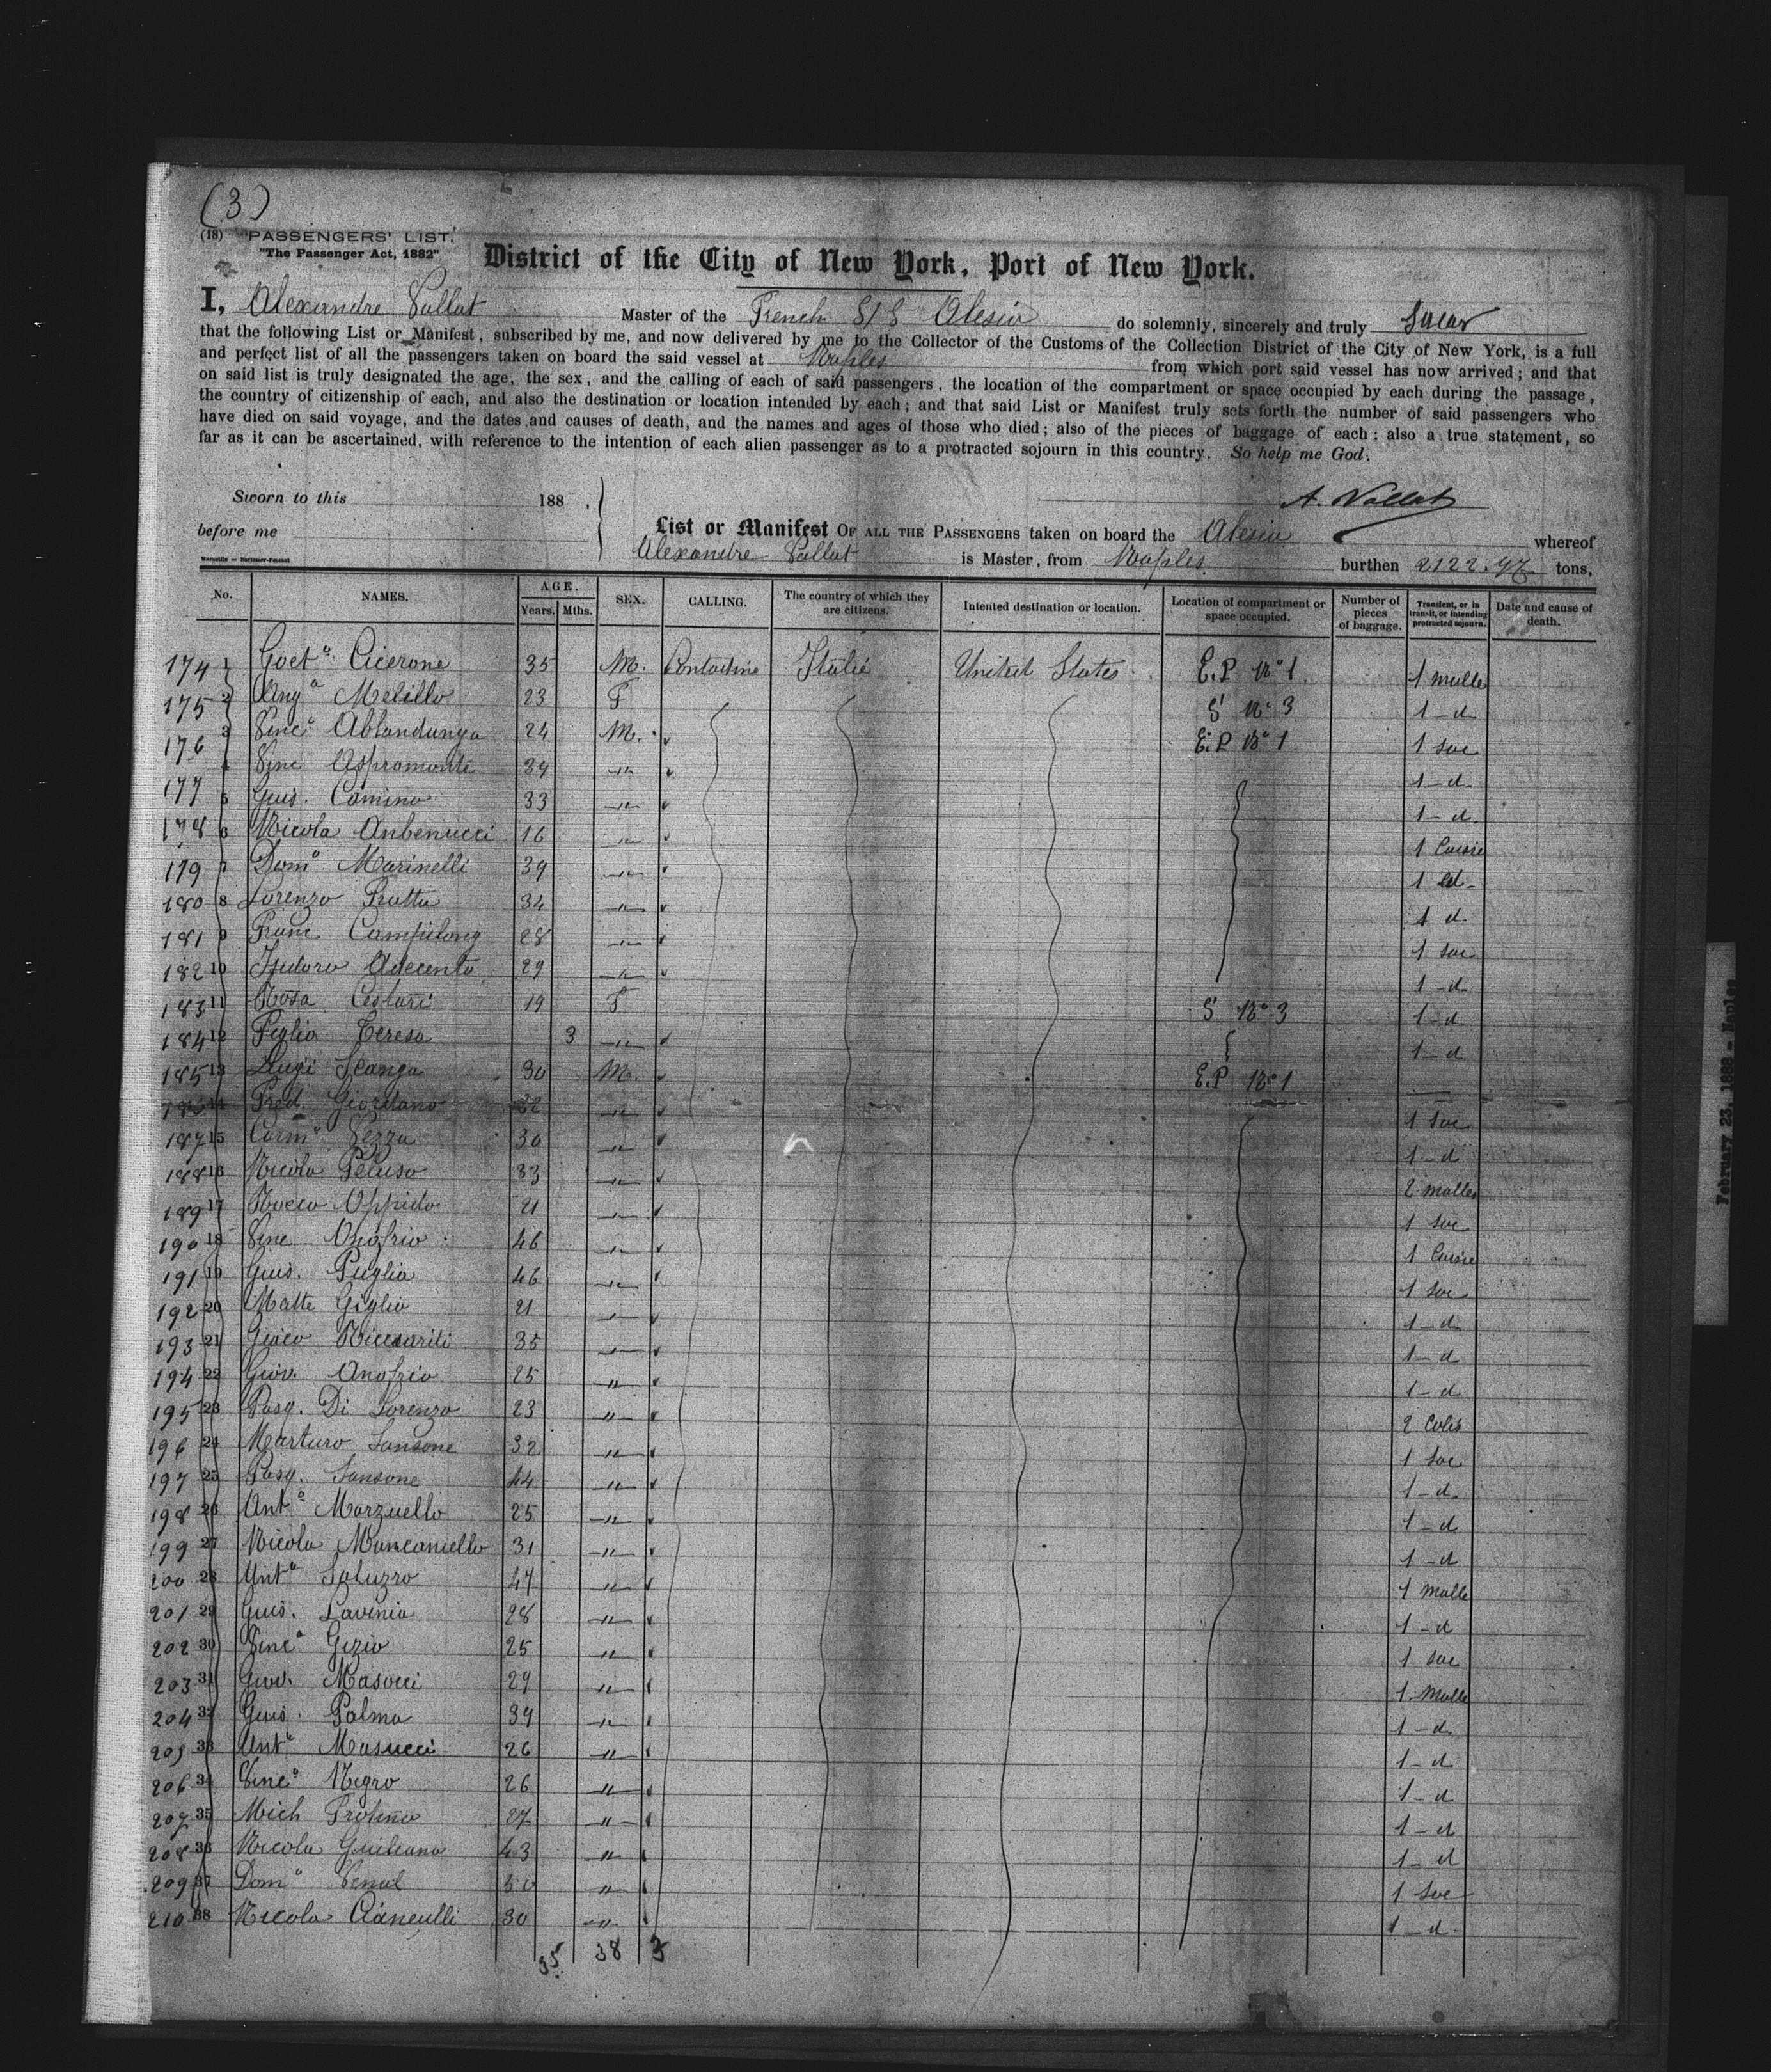 (3)
(18) "PASSENGERS' LIST."
"The Passenger Act, 1882"
District of the City of New York, Port of New York.
I, Alexandre Vallat Master of the French S/S Alesia do solemnly, sincerely and truly swear
that the following List or Manifest, subscribed by me, and now delivered by me to the Collector of the Customs of the Collection District of the City of New York, is a full
and perfect list of all the passengers taken on board the said vessel at Naples from which port said vessel has now arrived; and that
on said list is truly designated the age, the sex, and the calling of each of said passengers, the location of the compartment or space occupied by each during the passage,
the country of citizenship of each, and also the destination or location intended by each; and that said List or Manifest truly sets forth the number of said passengers who
have died on said voyage, and the dates and causes of death, and the names and ages of those who died; also of the pieces of baggage of each: also a true statement, so
far as it can be ascertained, with reference to the intention of each alien passenger as to a protracted sojourn in this country. So help me God.
Sworn to this 188 .
A. Vallat
before me
List or Manifest OF ALL THE PASSENGERS taken on board the Alesia whereof
Alexandre Vallat is Master, from Naples burthen 2122.97 tons,
No. NAMES. AGE. Years. Mths. SEX. CALLING. The country of which they are citizens. Intented destination or location. Location of compartment or space occupied. Number of pieces of baggage. Transient, or in transit, or intending protracted sojourn. Date and cause of death.
174 1 Gaeta Cicerone 35 M. Contadine Italie United States E.P No 1 1 malle
175 2 Anga Melillo 23 F S No 3 1 - d
176 3 Vinco Abbandunga 24 M. E.P No 1 1 sac
4 Vinc Aspromonte 39 -"- 1 - d
177 5 Gius. Camino 33 -"- 1 - d
178 6 Nicola Anbenucci 16 -"- 1 Caisse
179 7 Domo Marinelli 39 -"- 1 d-
180 8 Lorenzo Pratta 34 -"- 1 d
181 9 Franc Campilong 28 -"- 1 sac
182 10 Isidoro Adecenta 29 -"- 1 - d
183 11 Rosa Cestari 19 F S No 3 1 - d
184 12 Figlia Teresa 3 -"- 1 - d
185 13 Luigi Scanga 30 M. E.P No 1
14 Fred Giordano 22 -"- 1 sac
187 15 Carmo Pezza 30 -"- 1 - d
188 16 Nicola Peluso 33 -"- 2 malles
189 17 Rocco Oppido 21 -"- 1 sac
190 18 Vinc Onofrio 46 -"- 1 Caisse
191 19 Gius. Puglia 46 -"- 1 sac
192 20 Matte Giglio 21 -"- 1 - d
193 21 Giaco Ricciardi 35 -"- 1 - d
194 22 Giov. Onofrio 25 -"- 1 - d
195 23 Pasq. Di Lorenzo 23 -"- 2 Colis
196 24 Marturo Sansone 32 -"- 1 sac
197 25 Pasq. Sansone 44 -"- 1 - d
198 26 Anto Marzuello 25 -"- 1 - d
199 27 Nicola Mancaniello 31 -"- 1 - d
200 28 Anto Saluzzo 47 -"- 1 malle
201 29 Gius. Lavinia 28 -"- 1 - d
202 30 Vinco Gizio 25 -"- 1 sac
203 31 Giov. Masucci 29 -"- 1 Malle
204 32 Gius. Palma 39 -"- 1 - d
205 33 Anto Masucci 26 -"- 1 - d
206 34 Vinco Negro 26 -"- 1 - d
207 35 Mich 27 -"- 1 - d
208 36 Nicola Giuliano 43 -"- 1 - d
209 37 Domo 50 -"- 1 sac
210 38 Nicola Cianculli 30 -"- 1 - d
35 38 3
February 23, 1888 - Naples